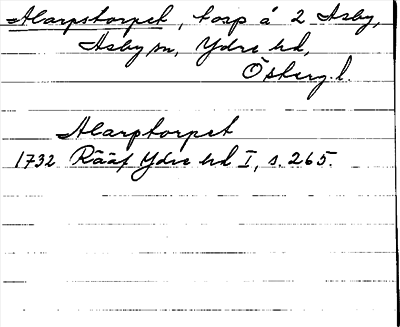 Alarpstorpet, torp å 2 Asby,
Asby sn, Ydre hd,
Österg. l.
Alarptorpet
1732 Rääf Ydre hd I, s. 265.